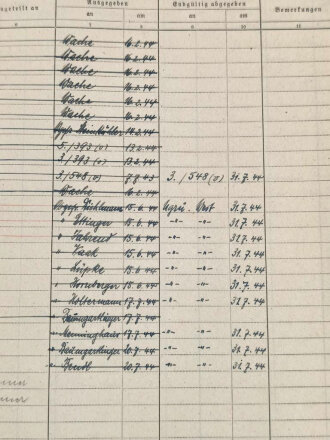 Ausgegeben Endgültig abgegeben
an am an am Bemerkungen
6 7 8 9 10 11
Wache 16.2.44
Wache 16.2.44
Wache 16.2.44
Wache 16.2.44
Wache 16.2.44
Wache 16.2.44
5./393 (o) 13.2.44
3./393 (o) 13.2.44
3./548 (o) 7.8.43 3./548 (o) 31.7.44
Wache 16.2.44
15.6.44 West 31.7.44
" Ittinger 15.6.44 -"- -"- 31.7.44
" Fahrend 15.6.44 -"- -"- 31.7.44
" Fack 15.6.44 -"- -"- 31.7.44
" Lüpke 15.6.44 -"- -"- 31.7.44
" Hornberger 15.6.44 -"- -"- 31.7.44
" Holtermann 17.7.44 -"- -"- 31.7.44
" Baumgartinger 17.7.44
" Nenninghaus 17.7.44 -"- -"- 31.7.44
" Baumgartinger 20.7.44 -"- -"- 31.7.44
" Fendl 20.7.44 -"- -"- 31.7.44